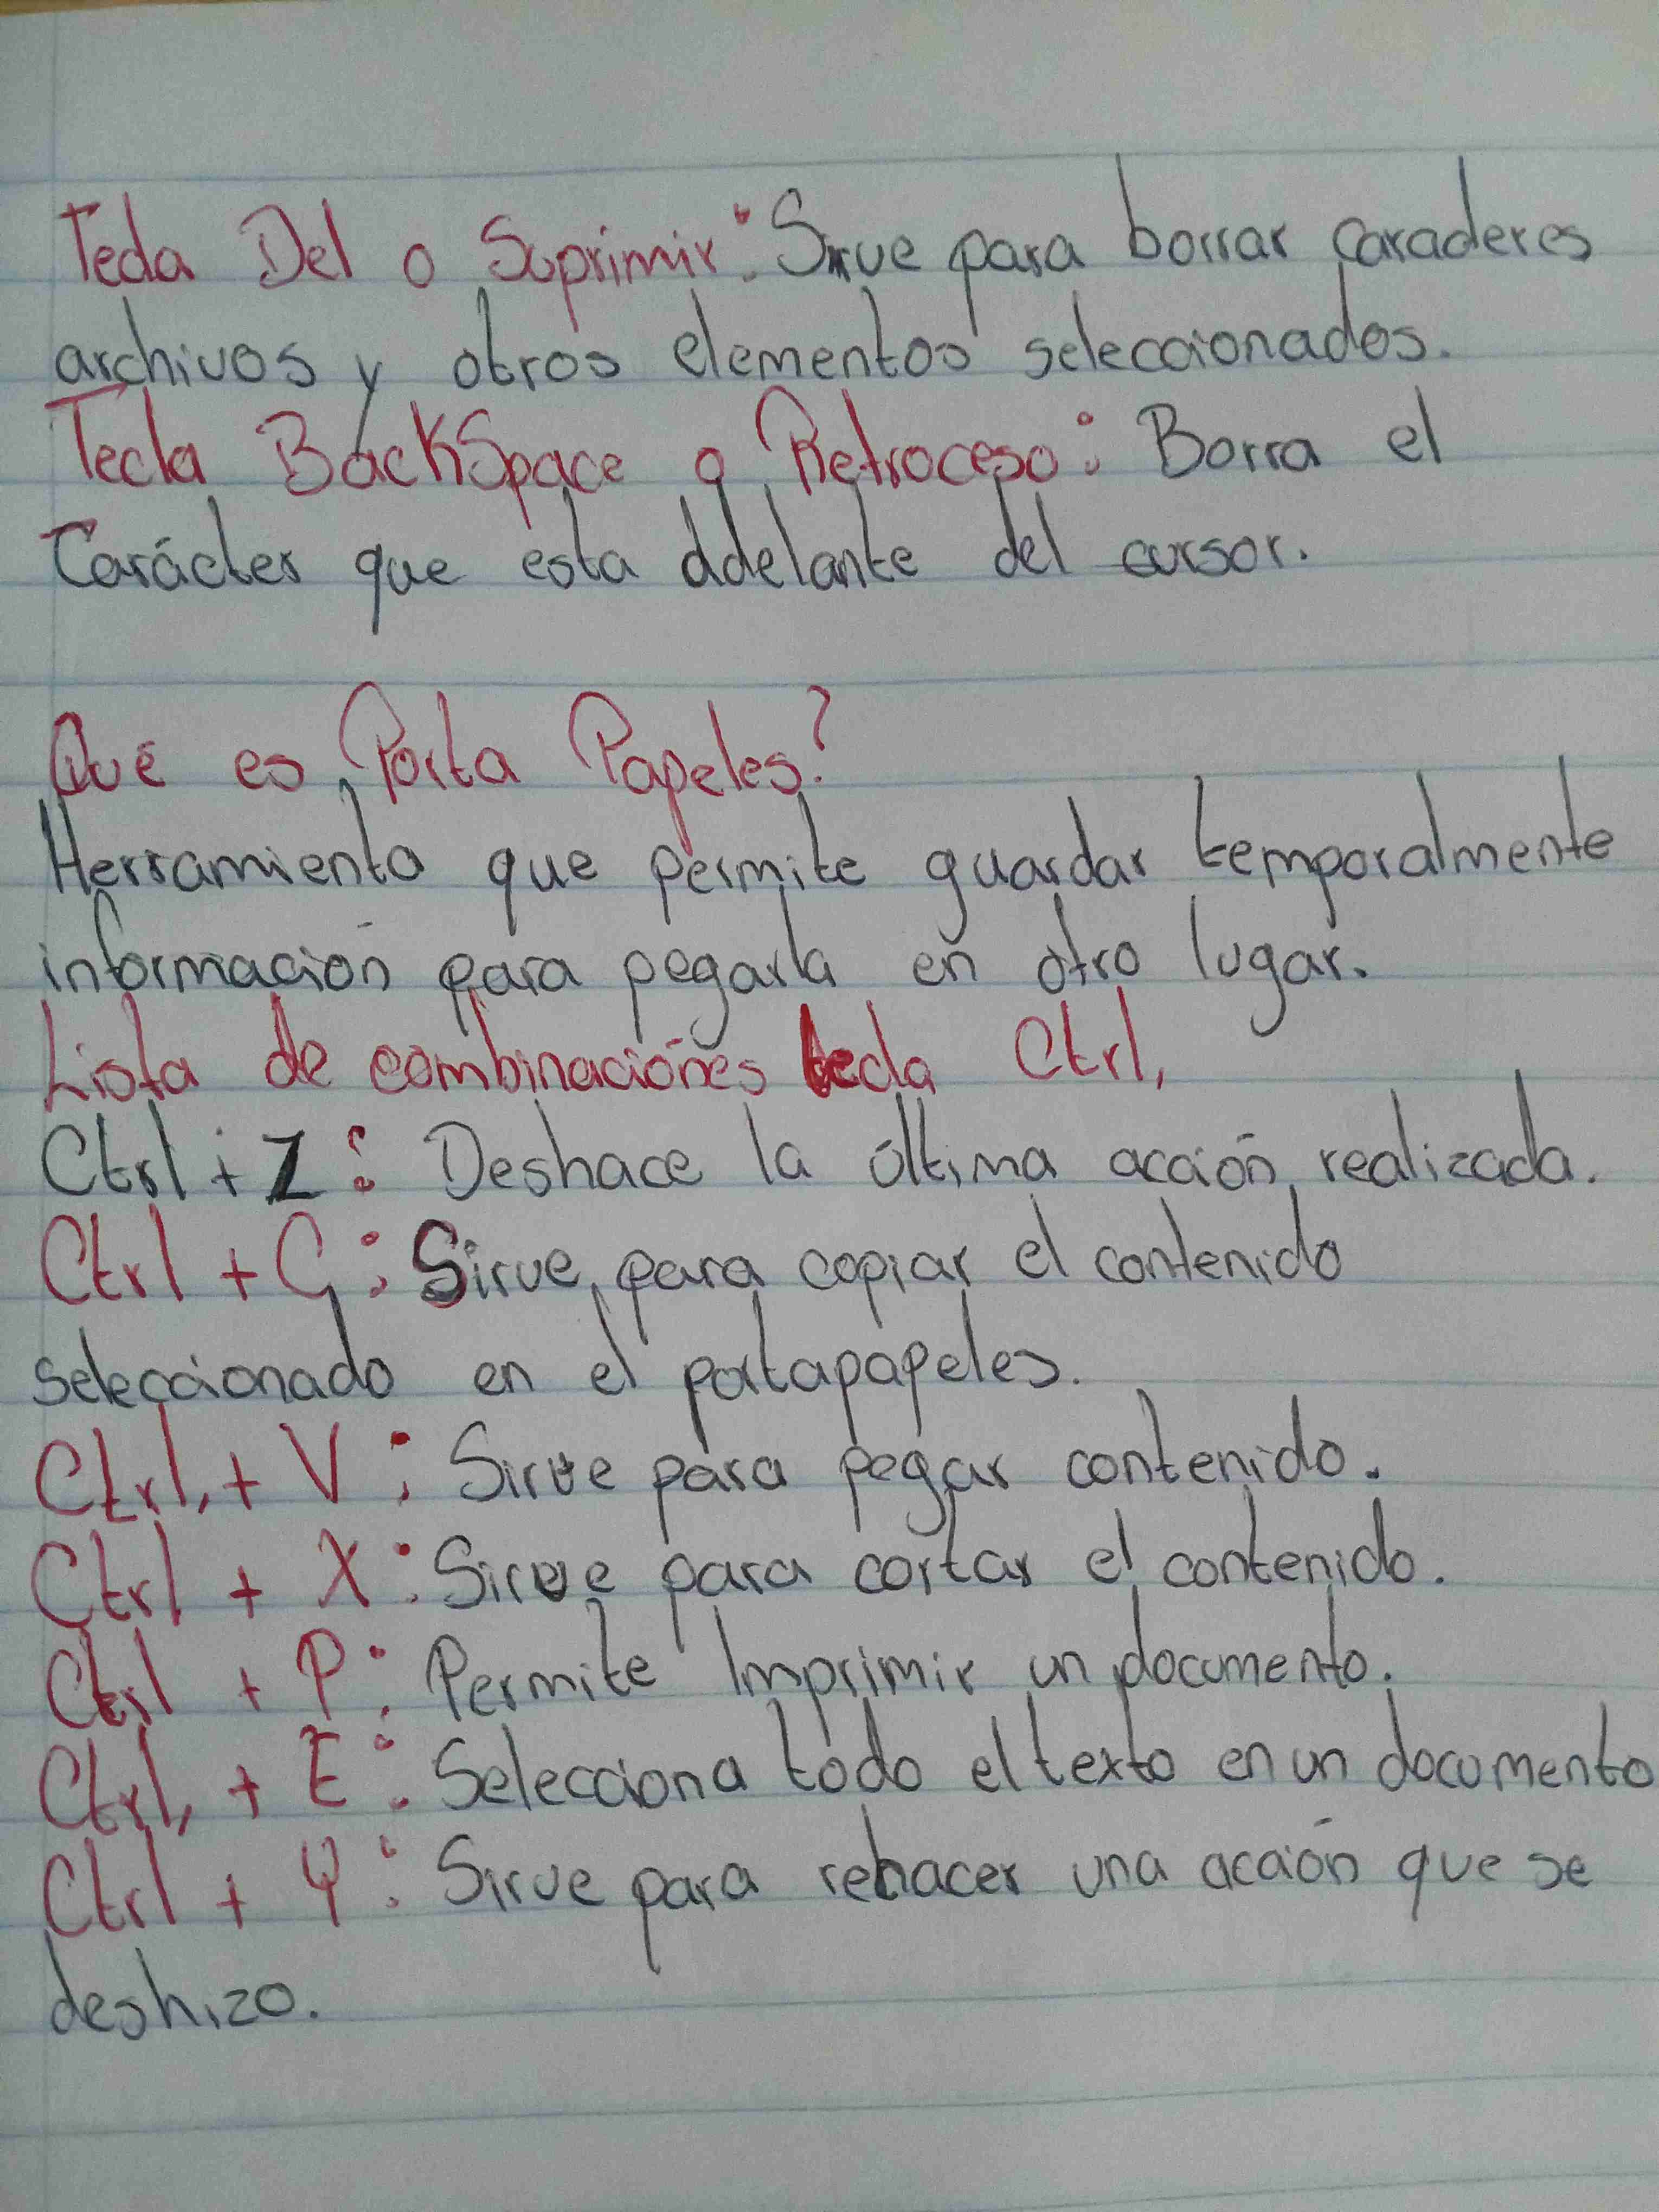 Tecla Del o Suprimir: Sirve para borrar caracteres
archivos y otros elementos seleccionados.
Tecla BackSpace o Retroceso: Borra el
Carácter que esta adelante del cursor.
Qué es Porta Papeles?
Herramienta que permite guardar temporalmente
información para pegarla en otro lugar.
Lista de combinaciónes tecla Ctrl,
Ctrl + Z: Deshace la última acción realizada.
Ctrl + C: Sirve para copiar el contenido
seleccionado en el portapapeles.
Ctrl, + V: Sirve para pegar contenido.
Ctrl + X: Sirve para cortar el contenido.
Ctrl + P: Permite Imprimir un documento.
Ctrl, + E: Selecciona todo el texto en un documento
Ctrl + Y: Sirve para rehacer una acción que se
deshizo.